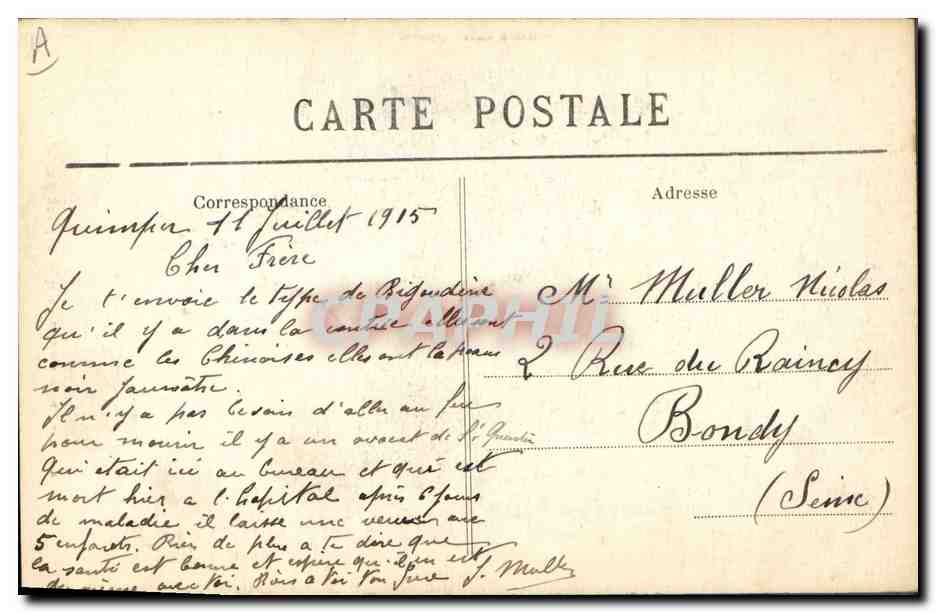 A
CARTE POSTALE
Correspondance
Adresse
Quimper 11 Juillet 1915
Cher Frère
Je t'envoie le type de Bigoudène
qu'il y a dans la contrée elles ont
comme les Chinoises elles ont la peau
noir Jaunâtre.
Il n'y a pas besoin d'aller au feu
pour mourir il y a un avocat de St Quentin
qui était ici au bureau et qui est
mort hier a l'hopital après 6 jours
de maladie il laisse une veuve avec
5 enfants. Rien de plus a te dire que
la santé est bonne et espère qu'il en est
de même avec toi. Bons a toi ton frère
J. Muller
Mr Muller Nicolas
2 Rue du Raincy
Bondy
(Seine)
CPAPHIL